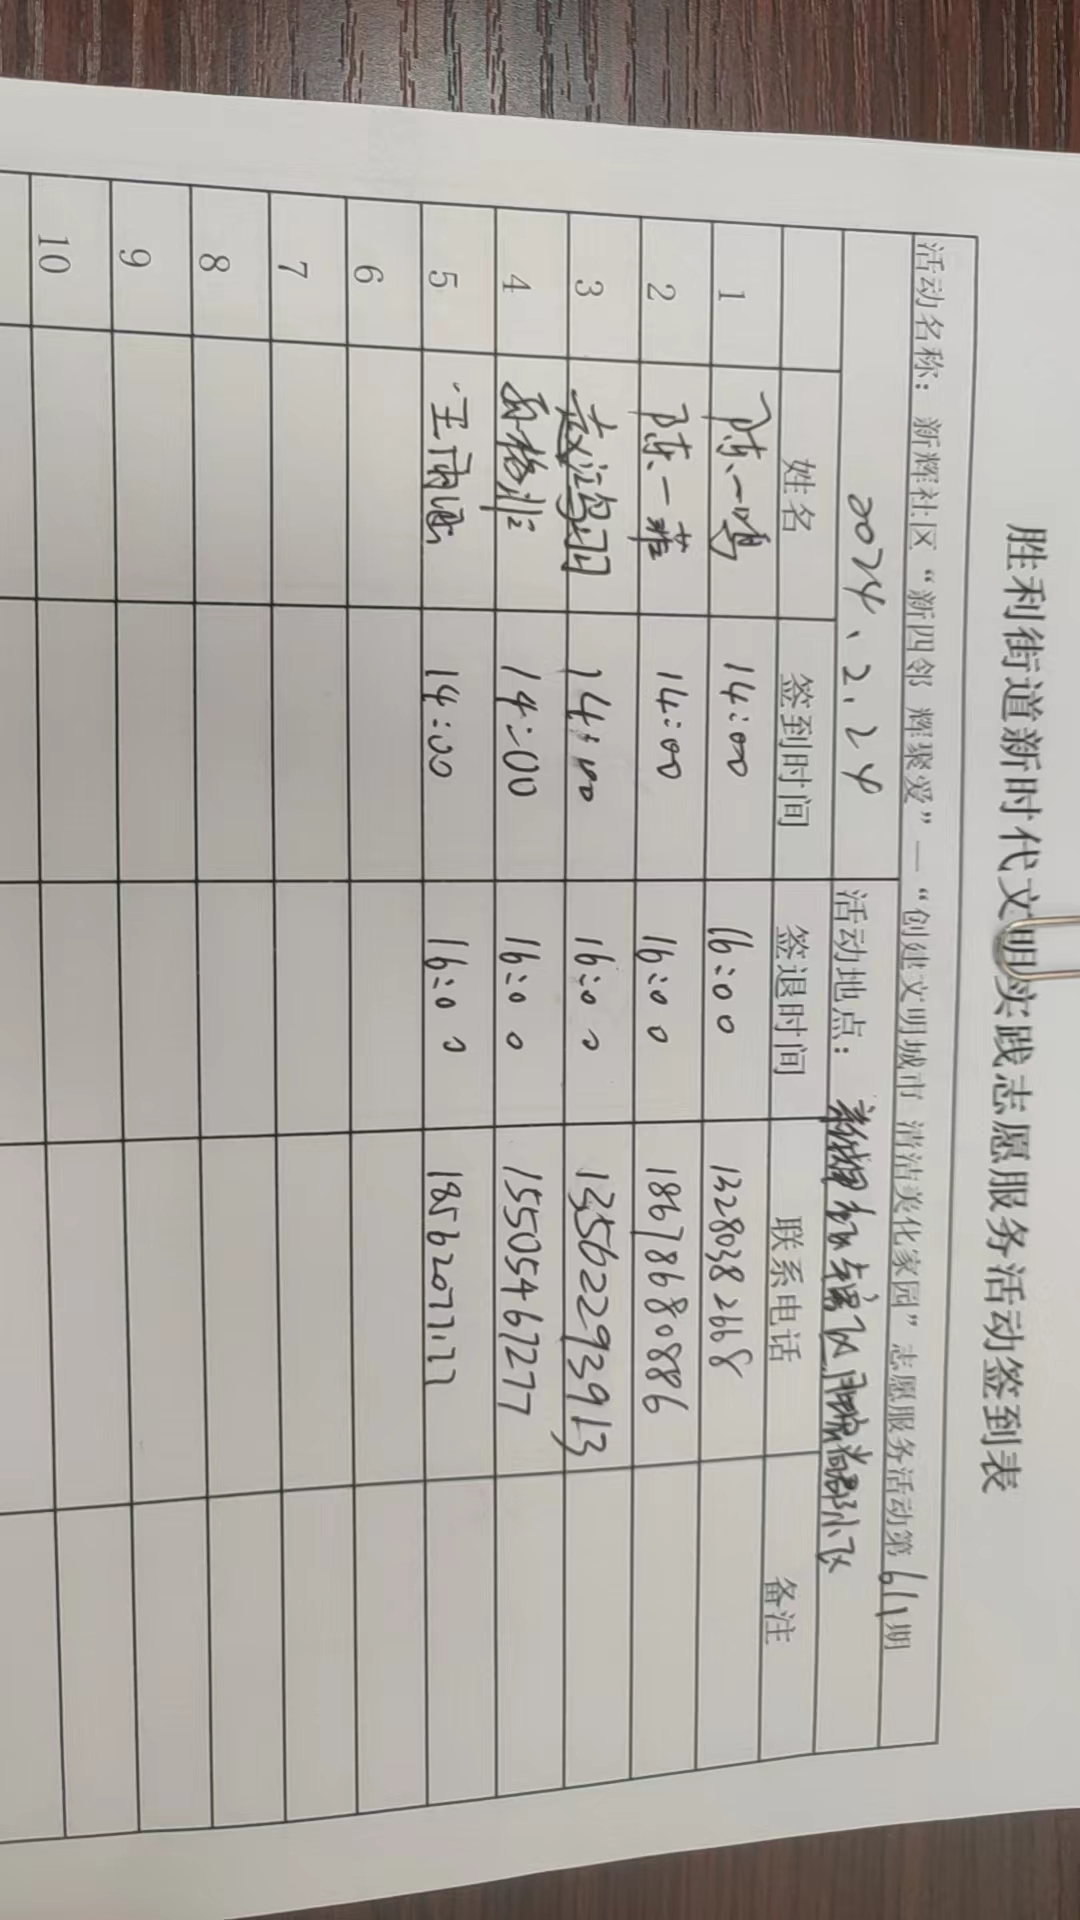 胜利街道新时代文明实践志愿服务活动签到表
活动名称：新辉社区“新四邻 辉聚爱”—“创建文明城市 清洁美化家园”志愿服务活动第611期
2024、2.24 活动地点：
姓名 签到时间 签退时间 联系电话 备注
1 陈一鸣 14:00 16:00 13280382668
2 陈一菲 14:00 16:00 18678680886
3 14:00 16:00 13562293913
4 14:00 16:00 15505467277
5 王雨涵 14:00 16:00
6
7
8
9
10